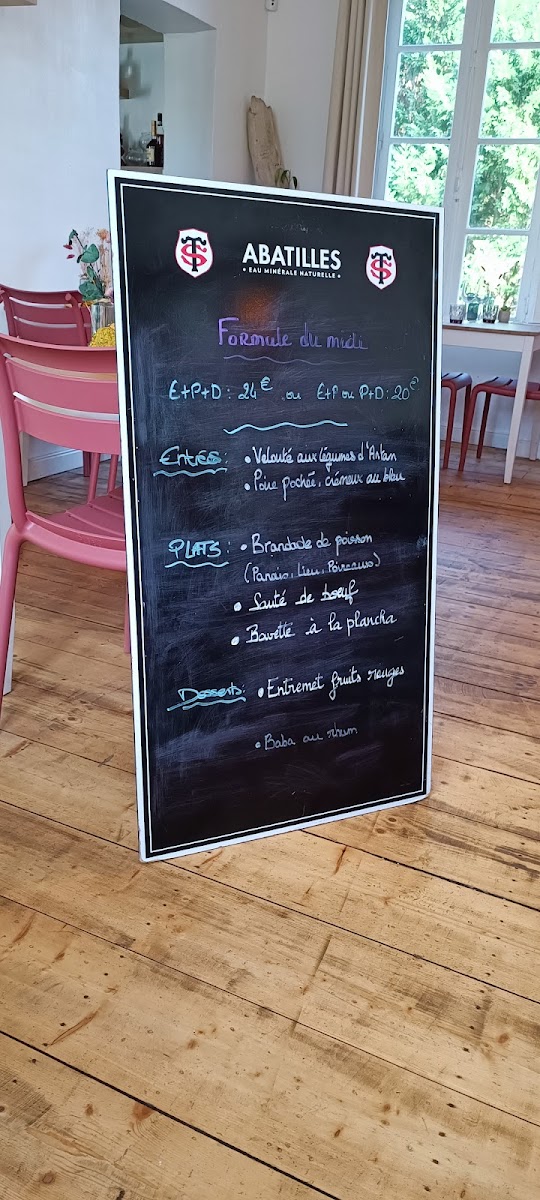 ABATILLES
• EAU MINÉRALE NATURELLE •
Formule du midi
E+P+D: 24€ ou E+P ou P+D: 20€
Entrées: • Velouté aux légumes d'Antan
• Poire pochée, crémeux au bleu
PLATS: • Brandade de poisson
(Panais, Lieu, Poireaux)
• Sauté de boeuf
• Bavette à la plancha
Desserts: • Entremet fruits rouges
• Baba au rhum